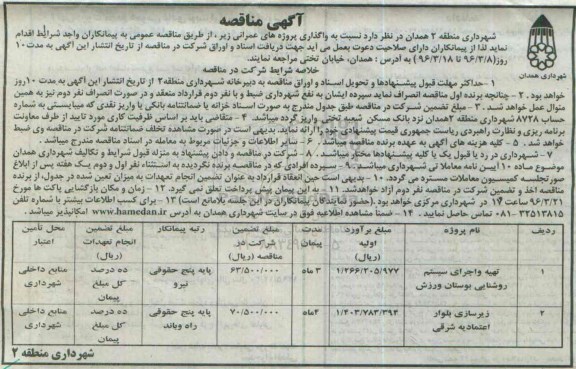 آگهی مناقصه
شهرداری همدان
شهرداری منطقه ۲ همدان در نظر دارد نسبت به واگذاری پروژه های عمرانی زیر، از طریق مناقصه عمومی به پیمانکاران واجد شرایط اقدام
نماید لذا از پیمانکاران دارای صلاحیت دعوت بعمل می آید جهت دریافت اسناد و اوراق شرکت در مناقصه از تاریخ انتشار این آگهی به مدت ۱۰
روز(۹۶/۳/۸ تا ۹۶/۳/۱۸) به آدرس : همدان، خیابان تختی مراجعه نمایند.
خلاصه شرایط شرکت در مناقصه
۱ – حداکثر مهلت قبول پیشنهادها و تحویل اسناد و اوراق مناقصه به دبیرخانه شهرداری منطقه۲ از تاریخ انتشار این آگهی به مدت ۱۰روز
خواهد بود. ۲ – چنانچه برنده اول مناقصه انصراف نماید سپرده ایشان به نفع شهرداری ضبط و با نفر دوم قرارداد منعقد و در صورت انصراف نفر دوم نیز به همین
منوال عمل خواهد شد. ۳ – مبلغ تضمین شرکت در مناقصه طبق جدول مندرج به صورت اسناد خزانه یا ضمانتنامه بانکی یا واریز نقدی که میبایستی به شماره
حساب ۸۷۲۸ شهرداری منطقه ۲همدان نزد بانک مسکن شعبه تختی واریز گردد میباشد. ۴ – متقاضی باید بر اساس ظرفیت کاری مورد تایید از طرف معاونت
برنامه ریزی و نظارت راهبردی ریاست جمهوری قیمت پیشنهادی خود را ارائه نماید. بدیهی است در صورت مشاهده تخلف ضمانتنامه شرکت در مناقصه وی ضبط
خواهد شد. ۵ – کلیه هزینه های آگهی به عهده برنده مناقصه میباشد. ۶ – سایر اطلاعات و جزئیات مربوط به معامله در اسناد مناقصه مندرج میباشد.
۷ – شهرداری در رد یا قبول یک یا کلیه پیشنهادها مختار میباشد. ۸ – شرکت در مناقصه و دادن پیشنهاد به منزله قبول شرایط و تکالیف شهرداری همدان
موضوع ماده ۱۰آیین نامه معاملاتی شهرداری میباشد. ۹ – سپرده افرادی که در مناقصه برنده نگردیده به استثناء نفر اول و دوم یک هفته پس از ابلاغ
صورتجلسه کمیسیون معاملات مسترد می گردد. ۱۰ – بدیهی است حین انعقاد قرارداد به عنوان تضمین انجام تعهدات به میزان تعیین شده در جدول، از برنده
مناقصه اخذ و تضمین شرکت در مناقصه نفر دوم آزاد خواهدشد. ۱۱ – به این پیمان پیش پرداخت تعلق نمی گیرد. ۱۲ – زمان و مکان بازگشایی پاکت ها مورخ
۹۶/۳/۲۱ ساعت ۱۷ در شهرداری مرکزی خواهد بود.(حضور نمایندگان پیمانکاران در این جلسه بلامانع است) ۱۳ – برای کسب اطلاعات بیشتر با شماره تلفن
۳۲۵۱۳۸۱۵-۰۸۱ تماس حاصل نمایید. ۱۴ – ضمنا مشاهده اطلاعیه فوق در سایت شهرداری همدان به آدرس www.hamedan.ir امکانپذیر میباشد.
ردیف | نام پروژه | مبلغ برآورد اولیه (ریال) | مدت پیمان | مبلغ تضمین شرکت در مناقصه (ریال) | رتبه پیمانکار | مبلغ تضمین انجام تعهدات (ریال) | محل تأمین اعتبار
۱ | تهیه واجرای سیستم روشنایی بوستان ورزش | ۱/۲۶۶/۲۰۵/۹۷۷ | ۳ ماه | ۶۳/۵۰۰/۰۰۰ | پایه پنج حقوقی نیرو | ده درصد کل مبلغ پیمان | منابع داخلی شهرداری
۲ | زیرسازی بلوار اعتمادیه شرقی | ۱/۴۰۳/۷۸۳/۳۹۴ | ۲ماه | ۷۰/۵۰۰/۰۰۰ | پایه پنج حقوقی راه وباند | ده درصد کل مبلغ پیمان | منابع داخلی شهرداری
شهرداری منطقه ۲